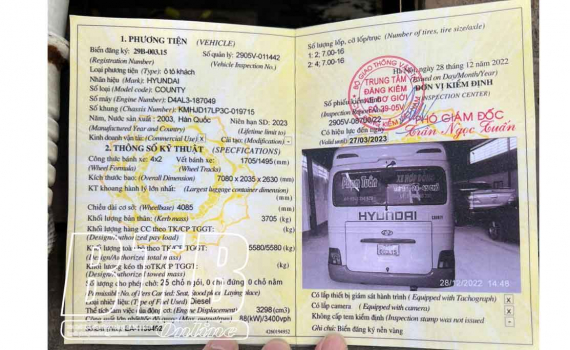 1. PHƯƠNG TIỆN (VEHICLE)
Biển đăng ký: 29B-003.15 Số quản lý: 2905V-011442
(Registration Number) (Vehicle Inspection No.)
Loại phương tiện: (Type) ô tô khách
Nhãn hiệu: (Mark) HYUNDAI
Số loại: (Model code) COUNTY
Số máy: (Engine Number) D4AL3-187049
Số khung: (Chassis Number) KMHJD17LP3C-019715
Năm, Nước sản xuất: 2003, Hàn Quốc Niên hạn SD: 2023
(Manufactured Year and Country) (Lifetime limit to)
Kinh doanh vận tải: (Commercial Use) X Cải tạo: (Modification) -
2. THÔNG SỐ KỸ THUẬT (SPECIFICATIONS)
Công thức bánh xe: 4x2 Vết bánh xe: 1705/1495 (mm)
(Wheel Formula) (Wheel Trucks)
Kích thước bao: (Overall Dimension) 7080 x 2035 x 2630 (mm)
KT khoang hành lý lớn nhất: (Largest luggage container dimension)
(mm)
Chiều dài cơ sở: (Wheelbase) 4085 (mm)
Khối lượng bản thân: (Kerb mass) 3705 (kg)
Khối lượng hàng CC theo TK/CP TGGT: (kg)
(Designed/
Khối lượng toàn bộ theo TK/CP TGGT: 5580/5580 (kg)
Khối lượng kéo theo TK/CP TGGT: (kg)
Số người cho phép chở: 25 chỗ ngồi, 0 chỗ đứng 0 chỗ nằm
Loại nhiên liệu: (Type of Fuel Used) Diesel
Thể tích làm việc của động cơ: (Engine Displacement) 3298 (cm3)
88(kW)/3400vph
Online
Số lượng lốp, cỡ lốp/trục (Number of tires, tire size/axle)
1: 2; 7.00-16
2: 4; 7.00-16
Hà Nội, ngày 28 tháng 12 năm 2022
(Issued on: Day/Month/Year)
ĐƠN VỊ KIỂM ĐỊNH
(INSPECTION CENTER)
BỘ GIAO THÔNG VẬN
TRUNG TÂM
ĐĂNG KIỂM
XE CƠ GIỚI
Số phiếu kiểm định
Có hiệu lực đến ngày
(Valid until) 27/03/2023
PHÓ GIÁM ĐỐC
Trần Ngọc Tuấn
Phạm Tuân
HYUNDAI
28/12/2022 14:48
Có lắp thiết bị giám sát hành trình (Equipped with Tachograph) X
Có lắp camera (Equipped with camera) X
Không cấp tem kiểm định (Inspection stamp was not issued) -
Ghi chú: Biển đăng ký nền vàng